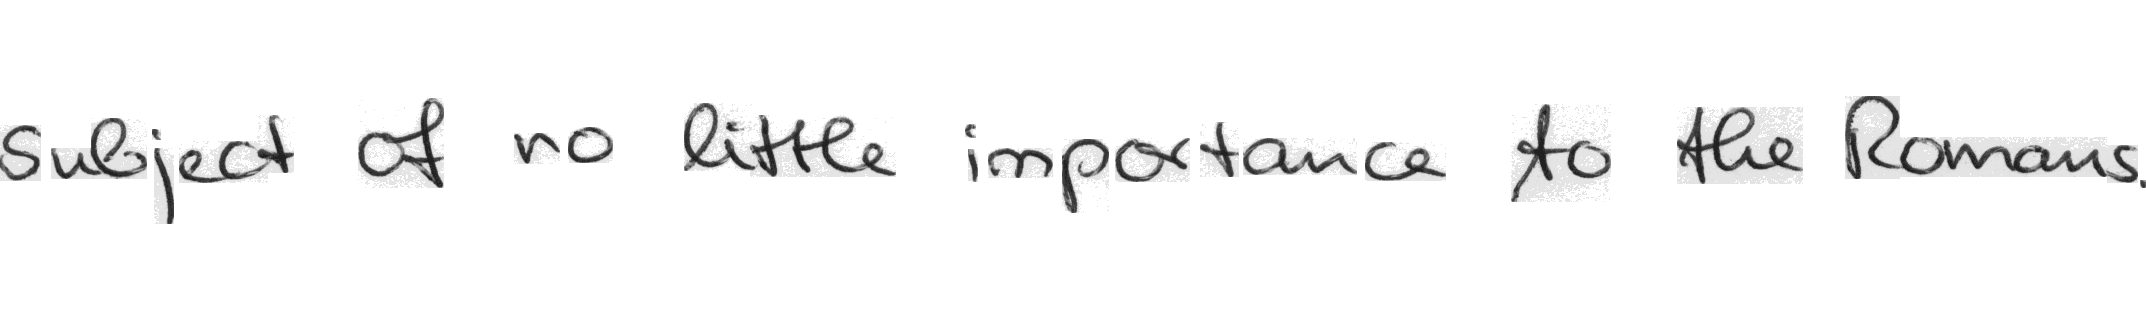 subject of no little importance to the Romans.